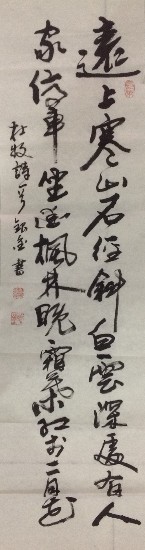 遠上寒山石径斜白雲深處有人
家停車坐愛楓林晚霜葉红于二月花
杜牧詩一首 書